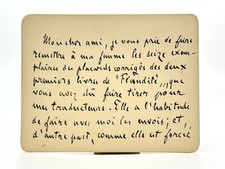 Mon cher ami, je vous prie de faire
remettre à ma femme les seize exem-
plaires du placards corrigés des deux
premiers livres de "Flandile", que
vous avez dû faire tirer pour
mes traducteurs. Elle a l'habitude
de faire avec moi les envois; et,
d'autre part, comme elle est forcée